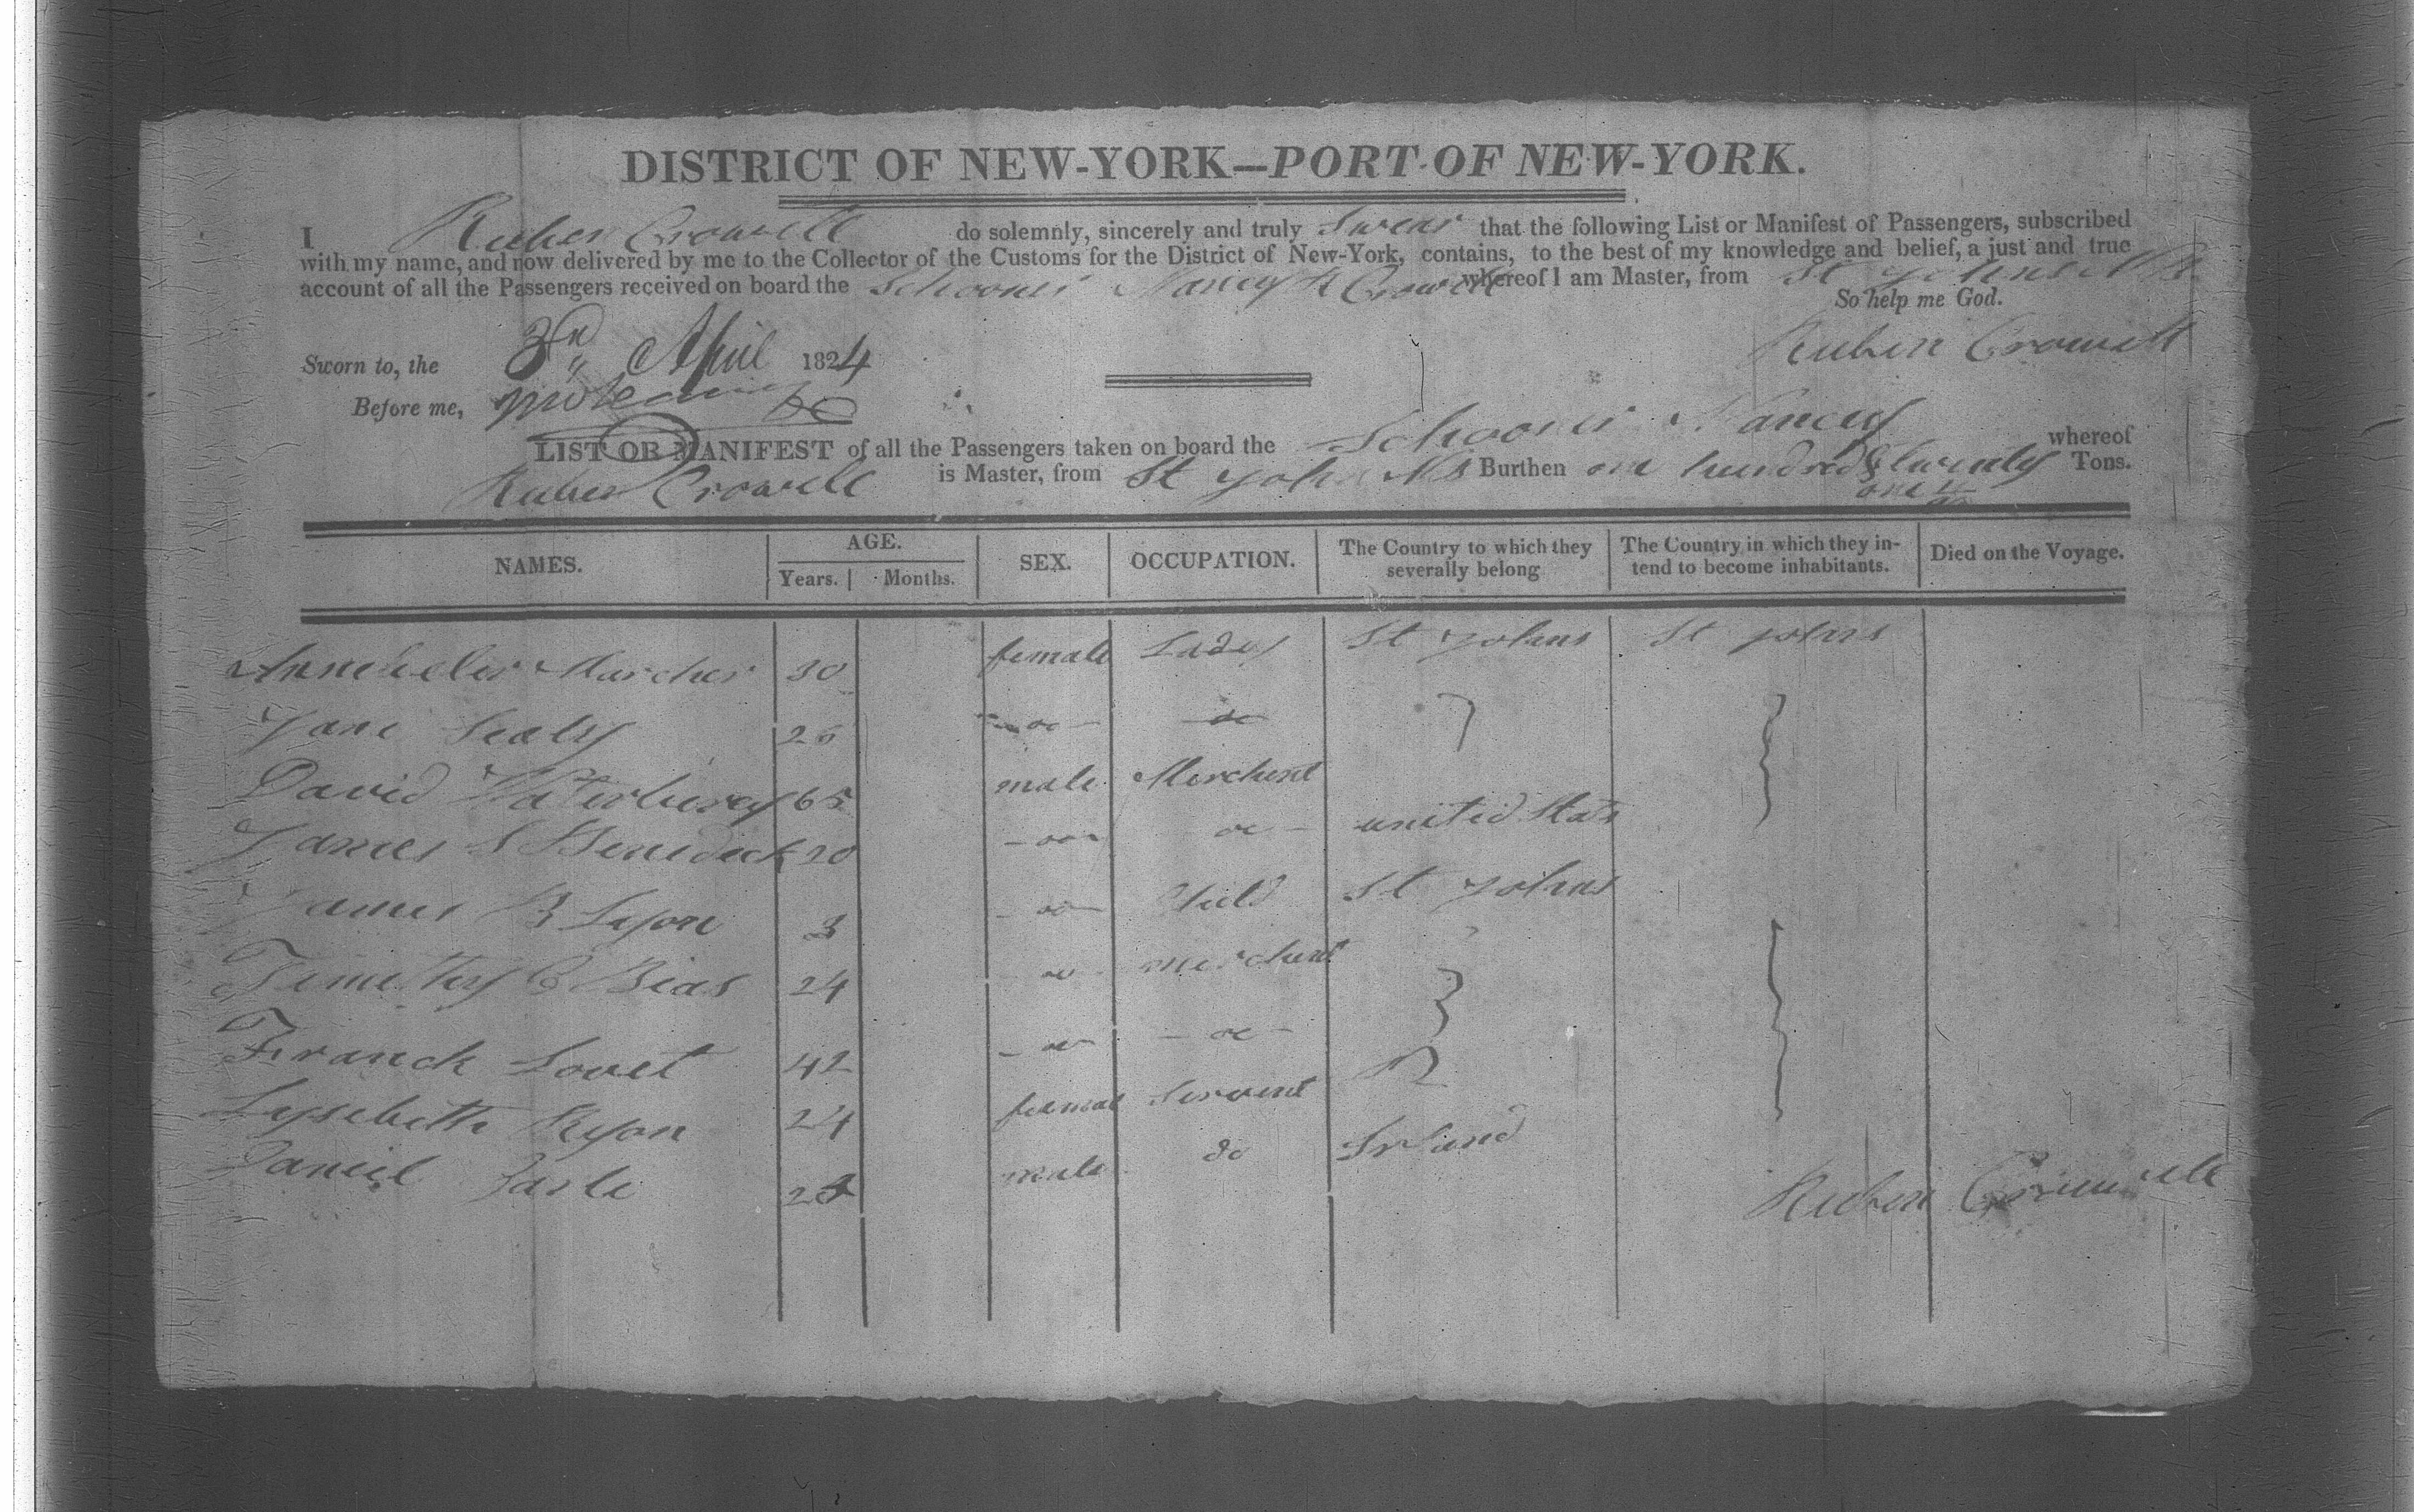 DISTRICT OF NEW-YORK—PORT OF NEW-YORK.
I Ruben Crowell do solemnly, sincerely and truly Swear that the following List or Manifest of Passengers, subscribed
with my name, and now delivered by me to the Collector of the Customs for the District of New-York, contains, to the best of my knowledge and belief, a just and true
account of all the Passengers received on board the Schooner Nancy R Crowell whereof I am Master, from St Johns NB
So help me God.
Sworn to, the 3rd April 1824 Ruben Crowell
Before me,
LIST OR MANIFEST of all the Passengers taken on board the Schooner Nancy whereof
Ruben Crowell is Master, from St John NB Burthen one hundred & twenty Tons.
one
NAMES. AGE. Years. Months. SEX. OCCUPATION. The Country to which they severally belong The Country in which they intend to become inhabitants. Died on the Voyage.
Marcher 30 female Lady St Johns St Johns
Jane Sealy 26 do do
David Waterburey 65 male Merchent
James S Benedick 20 do do united Stats
James R Lyon 3 do Child St Johns
Timethy C Bias 24 do merchent
Franck Lovet 42 do do
Lysebeth Ryon 24 female Servent
Daniel male do Irland
Ruben Crowell